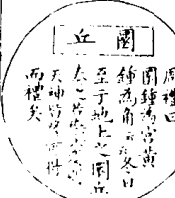 圜丘
周禮曰
圜鍾為宮黃
鍾為角云云冬日
至于地上之圜丘
奏之若樂六變
天神皆降可得
而禮矣